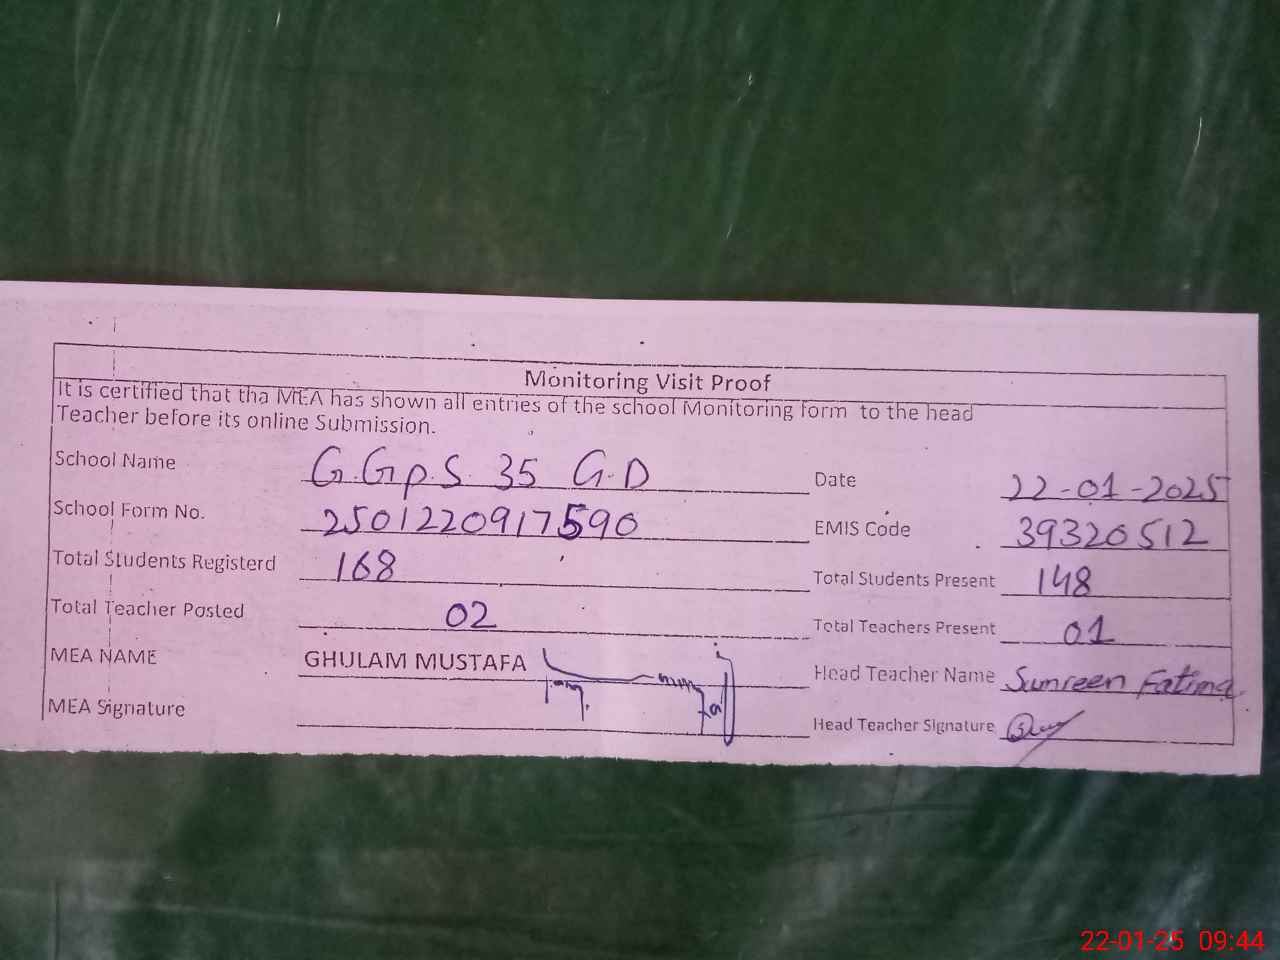 Monitoring Visit Proof
It is certified that tha MEA has shown all entries of the school Monitoring form to the head
Teacher before its online Submission.
School Name G.GP.S. 35 G.D Date 22-01-2025
School Form No. 2501220917590 EMIS Code 39320512
Total Students Registerd 168 Total Students Present 148
Total Teacher Posted 02 Total Teachers Present 01
MEA NAME GHULAM MUSTAFA Head Teacher Name Sunreen Fatima
MEA Signature Head Teacher Signature
22-01-25 09:44